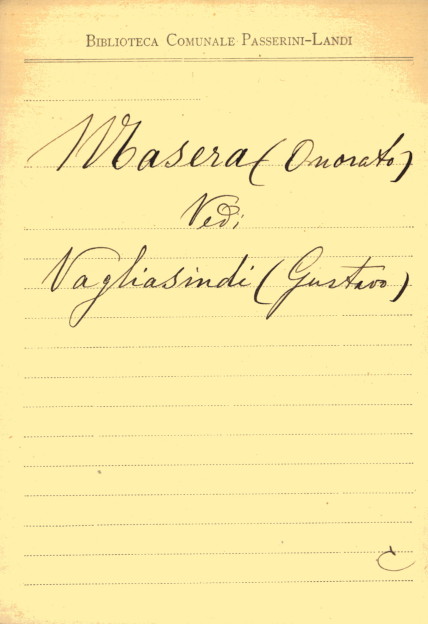 BIBLIOTECA COMUNALE PASSERINI-LANDI
Masera (Onorato)
Vedi
Vagliasindi (Gustavo)
C